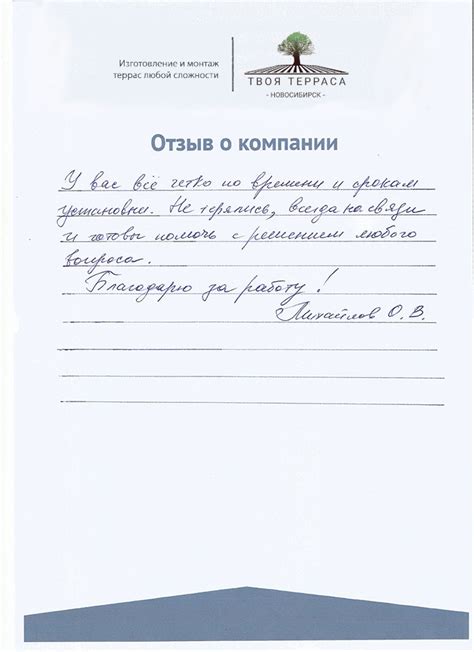 Изготовление и монтаж
террас любой сложности
ТВОЯ ТЕРРАСА
- НОВОСИБИРСК -
Отзыв о компании
У вас всё четко по времени и срокам
установки. Не терялись, всегда на связи
и готовы помочь с решением любого
вопроса.
Благодарю за работу!
Михайлов О. В.